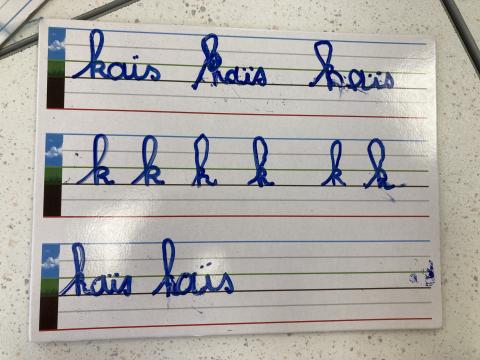 kaïs kaïs kaïs
k k k k k k
kaïs kaïs